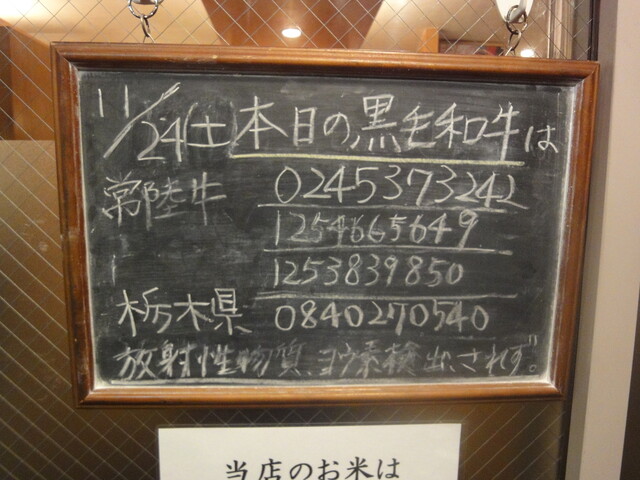 11/24(土)本日の黒毛和牛は
常陸牛 0245373242
1254665649
1253839850
栃木県 0840270540
放射性物質、ヨウ素検出されず。
当店のお米は